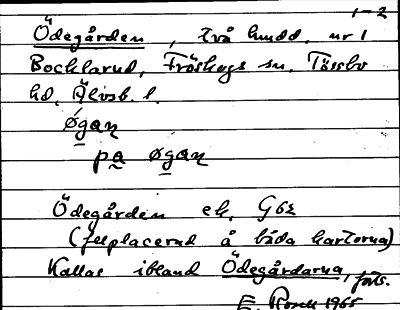 1-2
Ödegården, två hmdd. nr 1
Bocklarud, Fröskogs sn. Tössbo
hd. Älvsb. l.
øgaɳ
pa øgaɳ
Ödegården ek. G62
(felplacerad å båda kartorna)
Kallas ibland Ödegårdarna, forts.
E. 1965